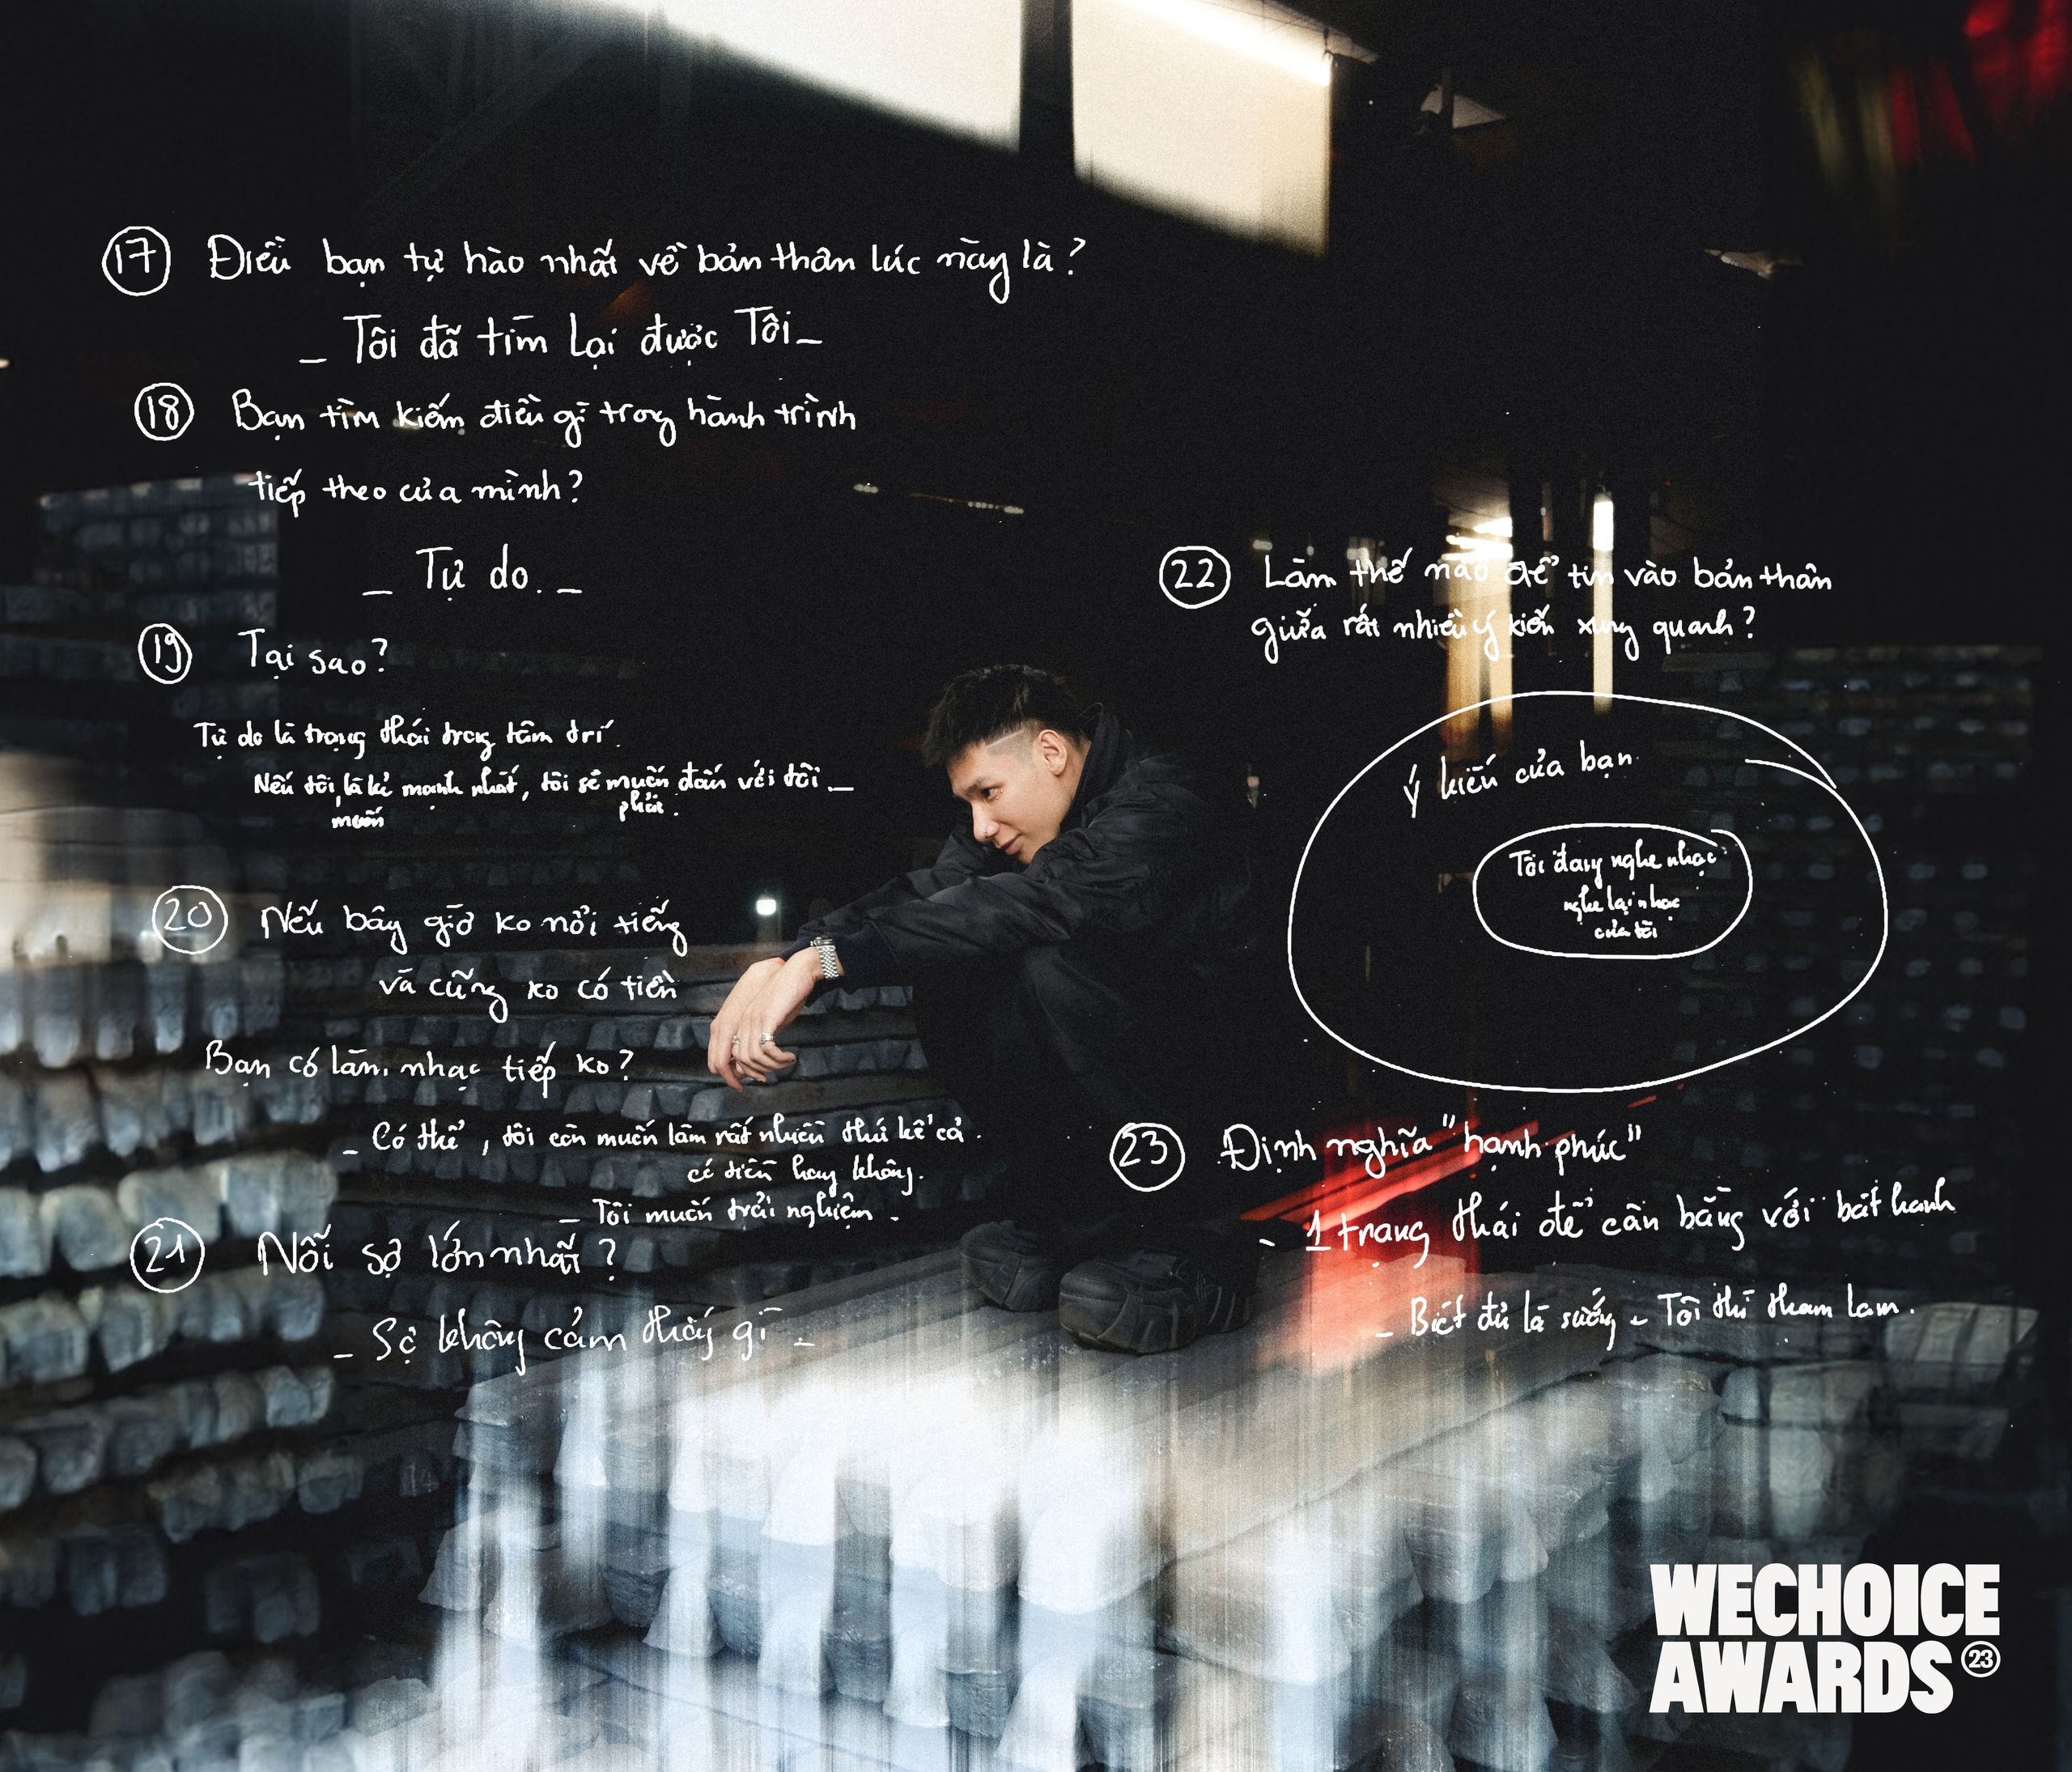 17 Điều bạn tự hào nhất về bản thân lúc này là?
_ Tôi đã tìm lại được Tôi _
18 Bạn tìm kiếm điều gì trong hành trình
tiếp theo của mình?
_ Tự do. _
19 Tại sao?
Tự do là trạng thái trong tâm trí.
Nếu tôi là kẻ mạnh nhất, tôi sẽ muốn đấu với tôi._
muốn
phải.
20 Nếu bây giờ ko nổi tiếng
và cũng ko có tiền
Bạn có làm nhạc tiếp ko?
_ Có thể, tôi còn muốn làm rất nhiều thứ kể cả.
có tiền hay không.
_ Tôi muốn trải nghiệm.
21 Nỗi sợ lớn nhất?
_ Sợ không cảm thấy gì _
22 Làm thế nào để tin vào bản thân
giữa rất nhiều ý kiến xung quanh?
Ý kiến của bạn
Tôi đang nghe nhạc
nghe lại nhạc
của tôi
23 Định nghĩa "hạnh phúc"
- 1 trạng thái để cân bằng với bất hạnh
_ Biết đủ là sướng - Tôi thì tham lam.
WECHOICE
AWARDS 23